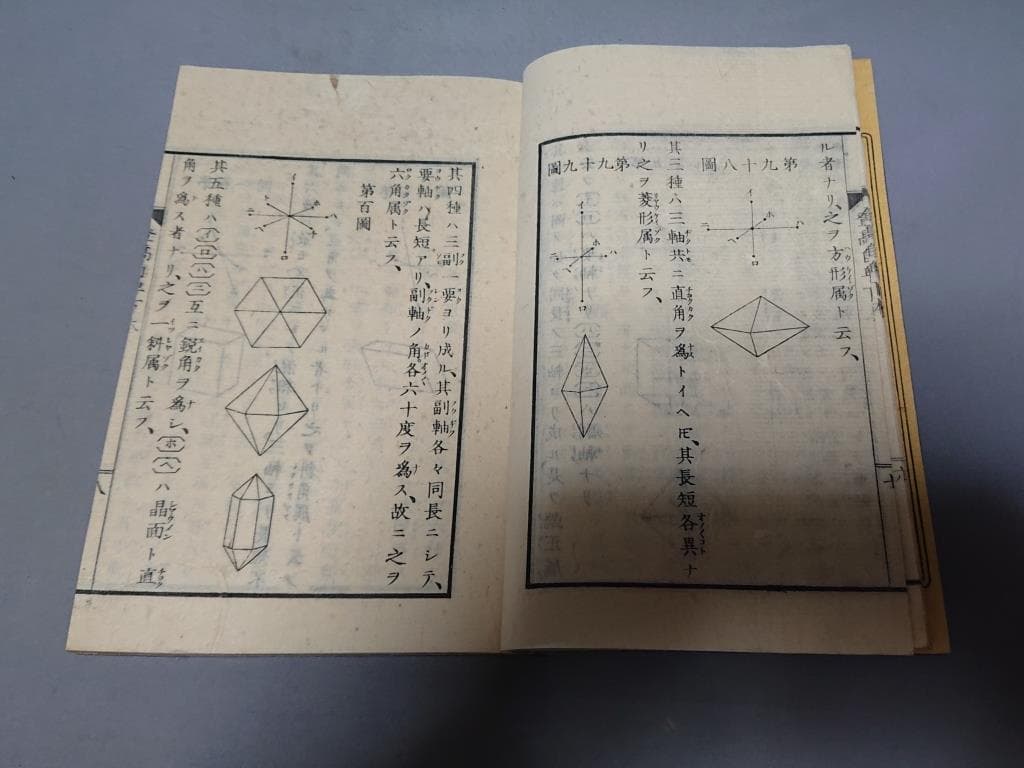 ル者ナリ之ヲ方形属ト云フ、
第九十八圖
イ
ロ
ハ
ニ
ホ
其三種ハ三軸共ニ直角ヲ為トイヘ𪜈、其長短各異ナ
リ之ヲ菱形属ト云フ、
第九十九圖
イ
ロ
ニ
ホ
十
其四種ハ三副一要ヨリ成ル、其副軸各々同長ニシテ、
要軸ハ長短アリ、副軸ノ角各六十度ヲ為ス、故ニ之ヲ
六角属ト云フ、
第百圖
イ
ロ
ハ
ニ
其五種ハ(イ)(ロ)(ハ)(ニ)互ニ鋭角ヲ為シ、(ホ)(ヘ)ハ晶面ト直
角ヲ為ス者ナリ、之ヲ一斜属ト云フ、